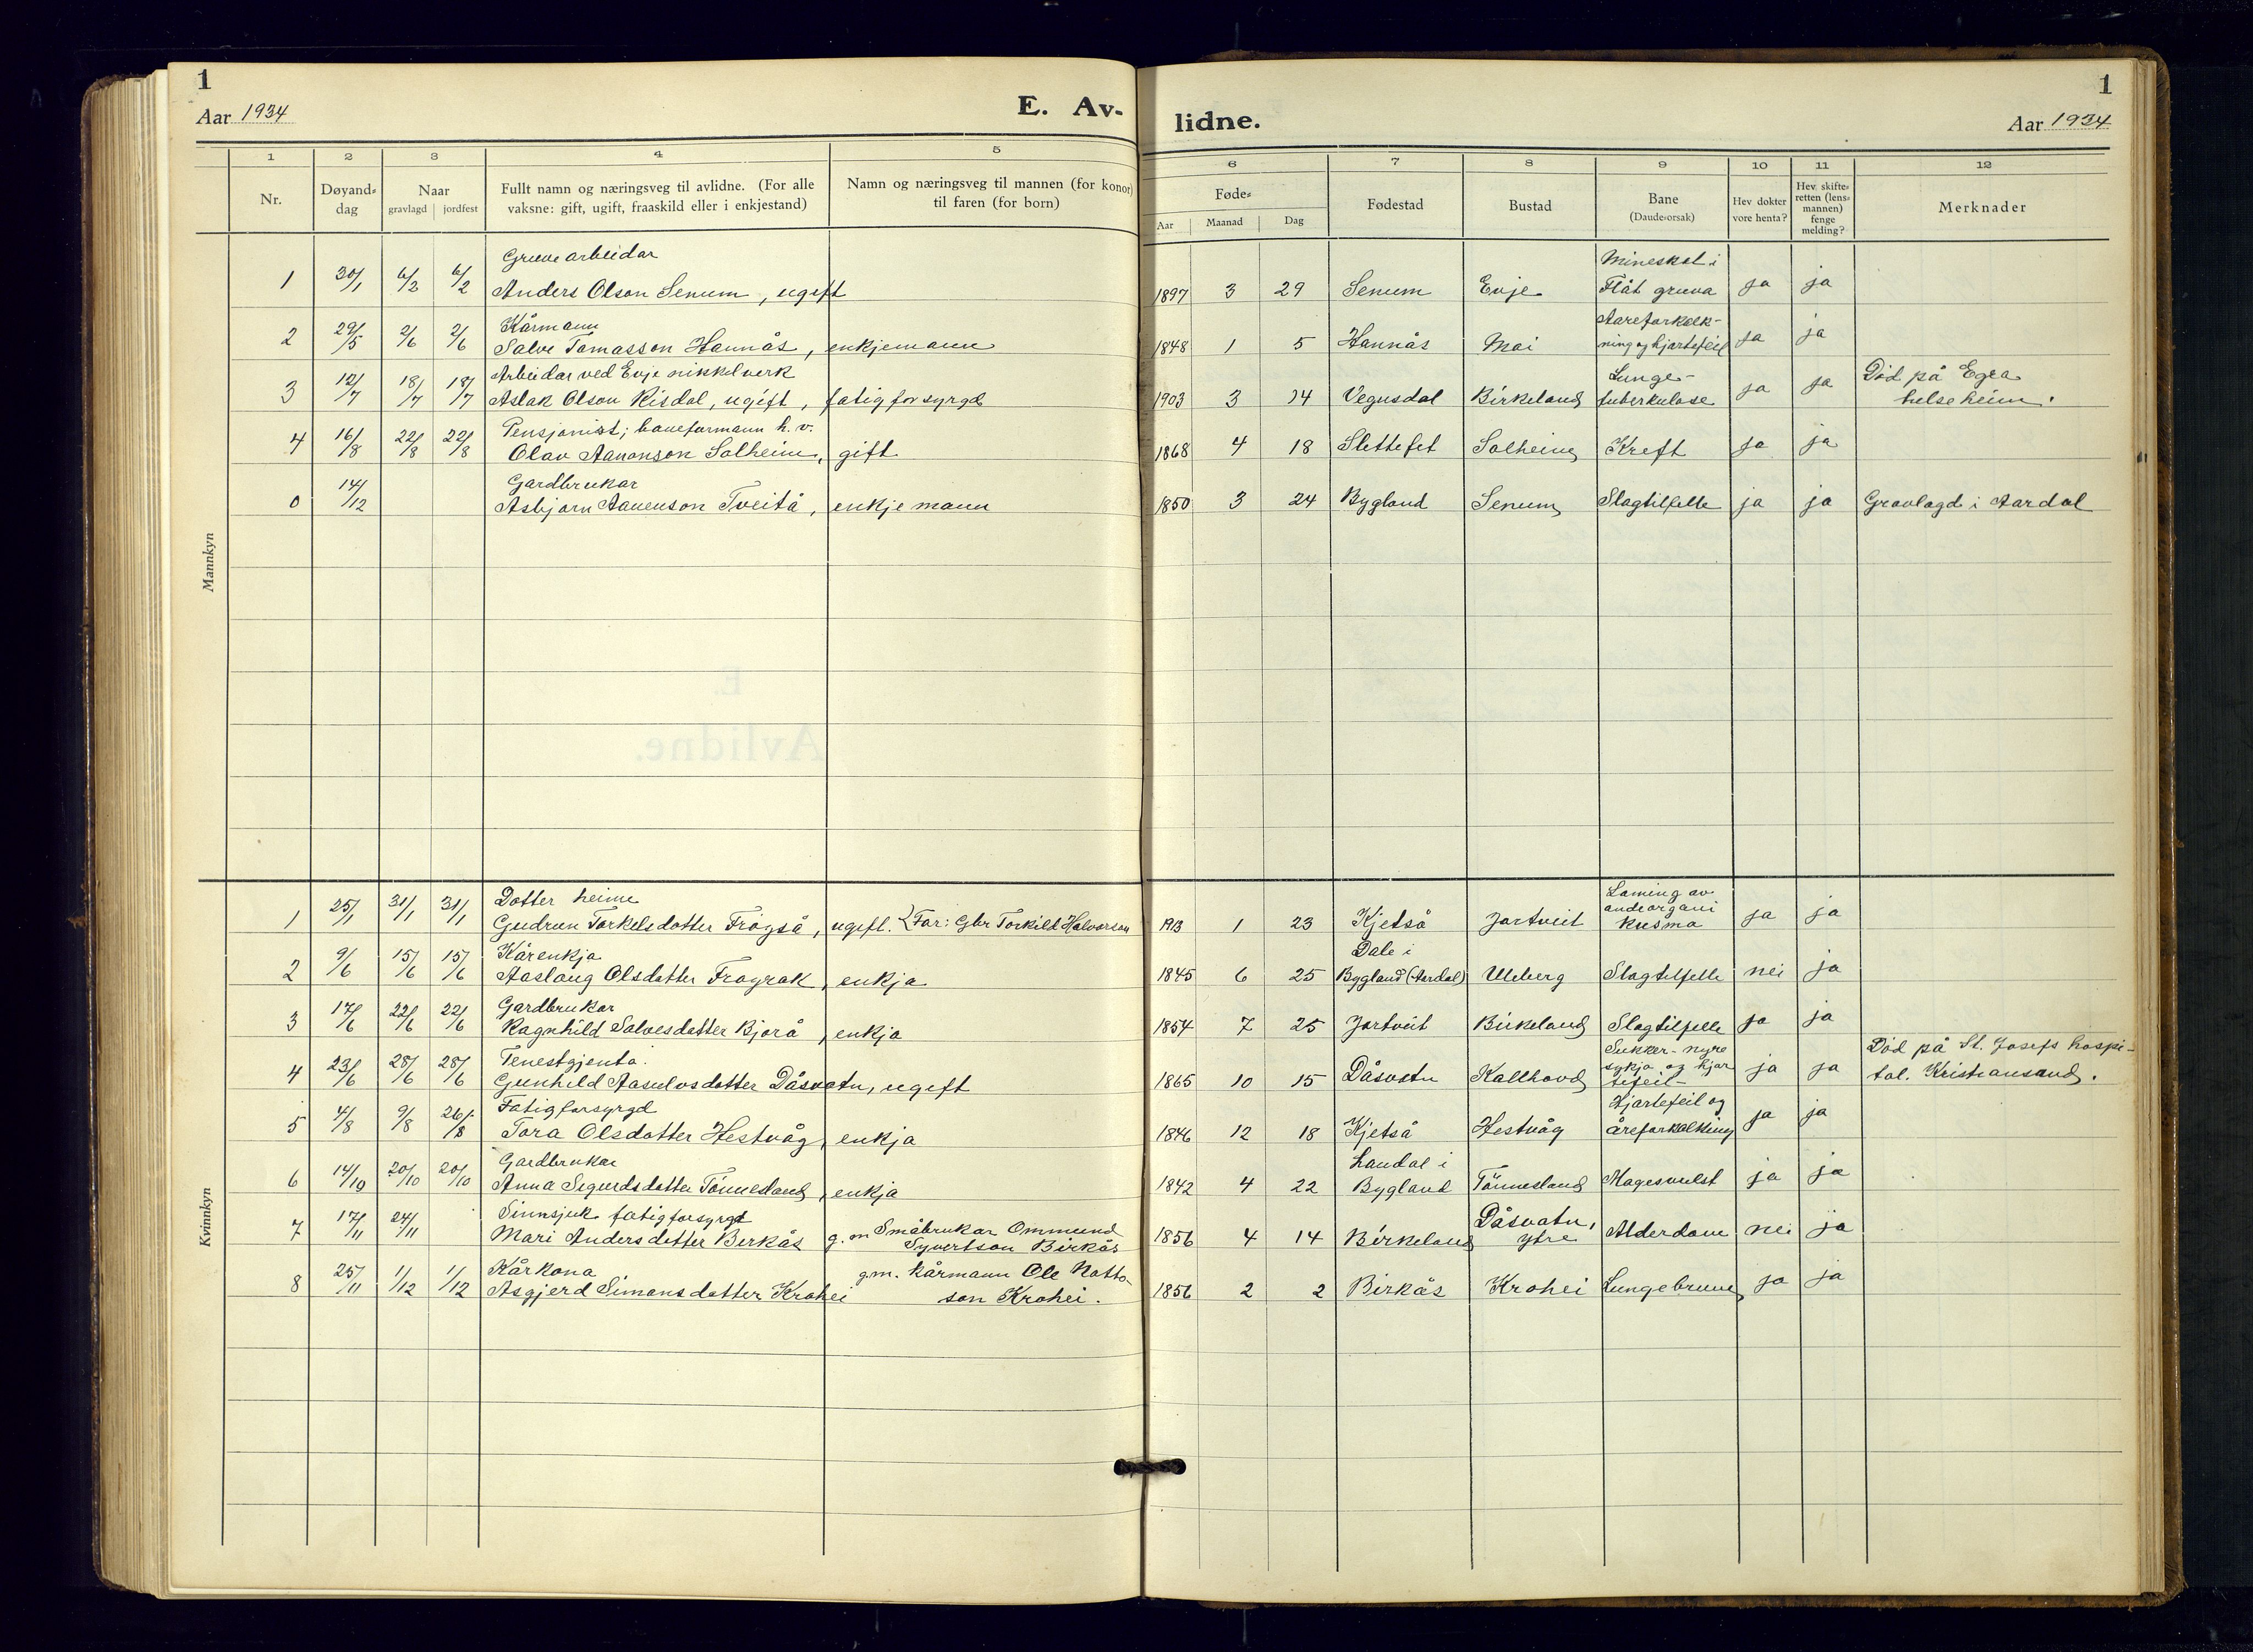 1
Aar 1934
E. Av-
lidne.
1
Aar 1934
1 2 3 4 5 6 7 8 9 10 11 12
Nr.
Døyand-dag
Naar
gravlagd jordfest
Fullt namn og næringsveg til avlidne. (For alle
vaksne: gift, ugift, fraaskild eller i enkjestand)
Namn og næringsveg til mannen (for konor)
til faren (for born)
Føde-
Aar Maanad Dag
Fødestad
Bustad
Bane
(Daude-orsak)
Hev dokter
vore henta?
Hev skifte-
retten (lens-
mannen)
fenge
melding?
Merknader
Mannkyn
Gruvearbeidar Mineskot i
1 30/1 6/2 6/2 Anders Olson Senum, ugift 1897 3 29 Senum Evje Flåt gruva ja ja
Kårmann Aareforkolk-
2 29/5 2/6 2/6 Salve Tomasson Hannås, enkjemann 1848 1 5 Hannås Moi ning og hjartefeil ja ja
Arbeidar ved Evje nikkelverk Lunge- Död på Egra
3 12/7 18/7 18/7 Aslak Olson Risdal, ugift, fatigforsyrgd 1903 3 14 Vegusdal Birkeland tuberkulose ja ja helseheim.
Pensjonist; baneformann h. v.
4 16/8 22/8 22/8 Olav Aanonson Solheim, gift 1868 4 18 Slettefet Solheim Kreft ja ja
Gardbrukar
0 14/12 Asbjörn Aanenson Tveitå, enkjemann 1850 3 24 Bygland Senum Slagtilfelle ja ja Gravlagd i Aardal
Kvinnkyn
Dotter heime Laming av
andeorgani
1 25/1 31/1 31/1 Gudrun Torkelsdotter Frögså, ugift. Far: Gbr Torkild Halvorson 1913 1 23 Kjetså Jortveit kusma ja ja
Kårenkja Dale i
2 9/6 15/6 15/6 Aaslaug Olsdotter Frøyrak, enkja 1845 6 25 Bygland (Aardal) Uleberg Slagtilfelle nei ja
Gardbrukar
3 17/6 22/6 22/6 Ragnhild Salvesdotter Bjorå, enkja 1854 7 25 Jortveit Birkeland Slagtilfelle ja ja
Tenestgjenta. Sukker-nyre Död på St. Josefs hospi-
4 23/6 28/6 28/6 Gunhild Aasulvsdotter Dåsvatn, ugift 1865 10 15 Dåsvatn Kallhovd sykja og hjar ja ja tal. Kristiansand.
tefeil-
Fatigforsyrgd Hjartefeil og
5 4/8 9/8 26/8 Tora Olsdotter Hestvåg, enkja 1846 12 18 Kjetså Hestvåg åreforkolking ja ja
Gardbrukar Landal i
6 14/10 20/10 20/10 Anna Sigurdsdotter Tönnesland, enkja 1842 4 22 Bygland Tönnesland Magesvulst ja ja
Sinnsjuk fatigforsyrgt g. m Småbrukar Ommund Dåsvatn,
7 17/11 24/11 Mari Andersdotter Berkås Syvertson Birkås 1856 4 14 Birkeland ytre Alderdom nei ja
Kårkona g.m. kårmann Ole Notto-
8 25/11 1/12 1/12 Asgjerd Simonsdotter Krohei son Krohei. 1856 2 2 Birkås Krohei Lungebrune ja ja